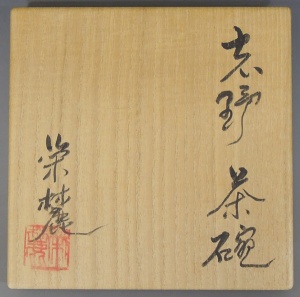 志野 茶碗
栄麓